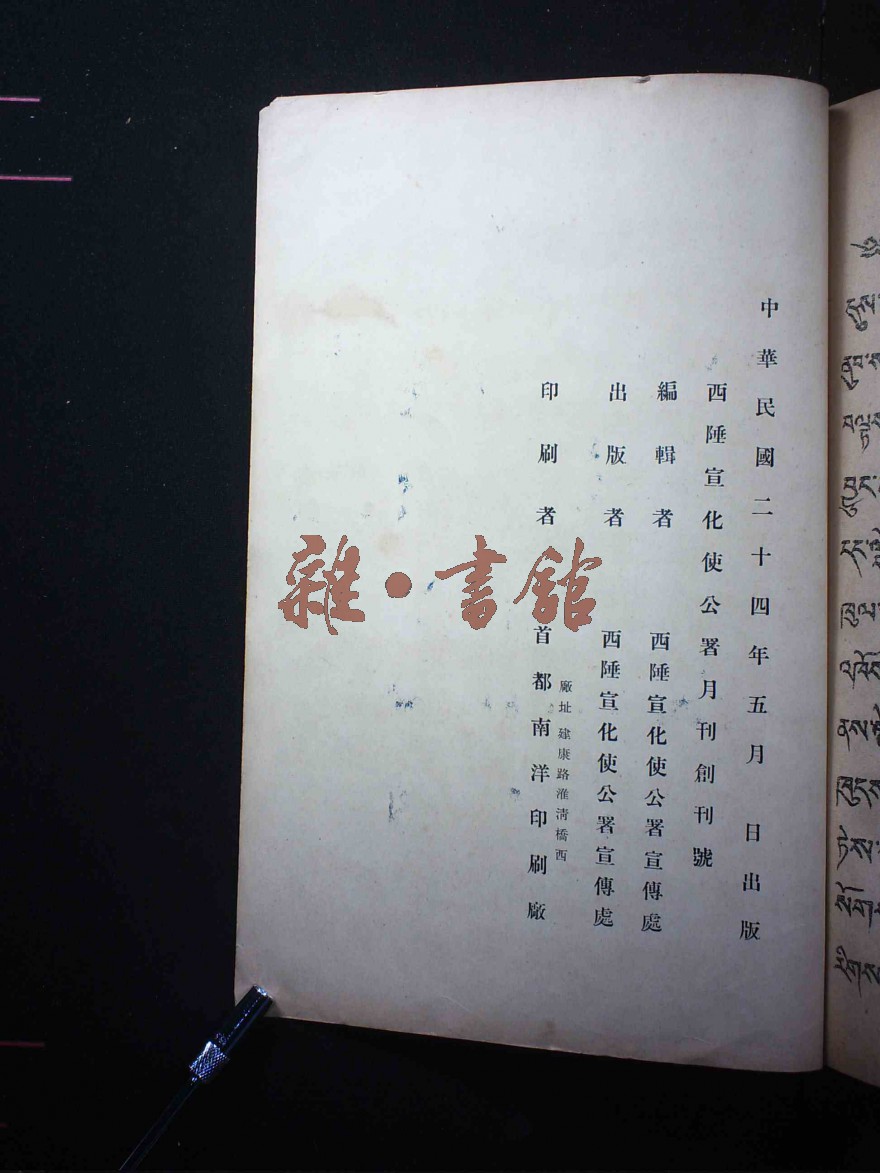 中華民國二十四年五月　日出版
西陲宣化使公署月刊創刊號
編輯者　西陲宣化使公署宣傳處
出版者　西陲宣化使公署宣傳處
廠址　建康路淮清橋西
印刷者　首都南洋印刷廠
雜·書館